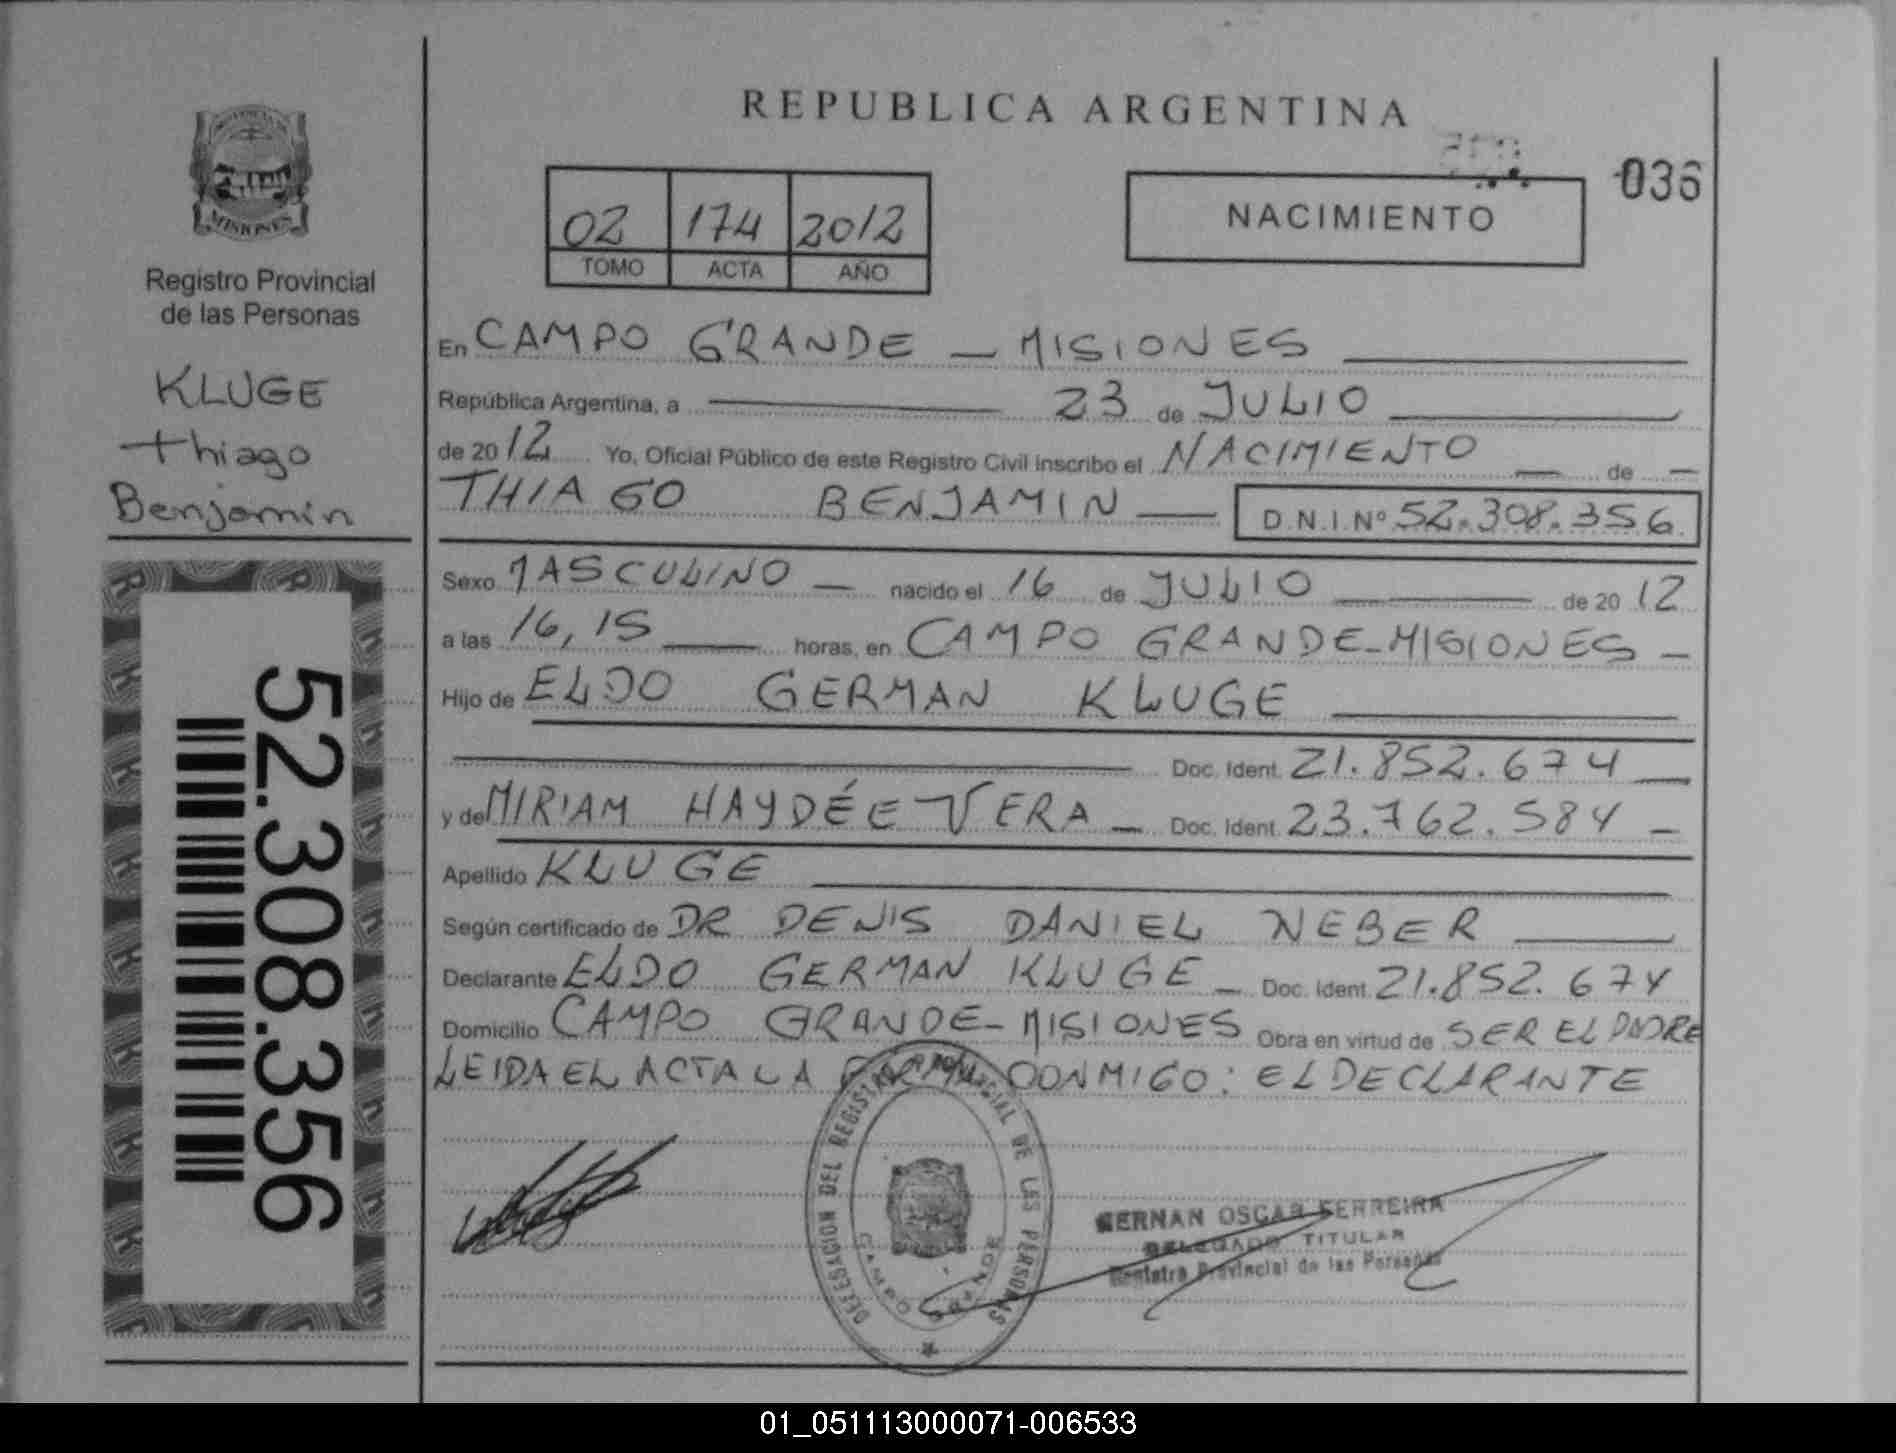 REPUBLICA ARGENTINA
036
02 174 2012
TOMO ACTA AÑO
NACIMIENTO
MISIONES
Registro Provincial
de las Personas
KLUGE
Thiago
Benjamin
52.308.356
En CAMPO GRANDE — MISIONES
República Argentina, a 23 de JULIO
de 2012 Yo, Oficial Público de este Registro Civil inscribo el NACIMIENTO — de —
THIAGO BENJAMIN — D.N.I.Nº 52.308.356
Sexo MASCULINO — nacido el 16 de JULIO de 2012
a las 16,15 horas, en CAMPO GRANDE-MISIONES —
Hijo de ELDO GERMAN KLUGE
Doc. Ident. 21.852.674
y de MIRIAM HAYDÉE VERA — Doc. Ident. 23.762.584 —
Apellido KLUGE
Según certificado de DR DENIS DANIEL NEBER
Declarante ELDO GERMAN KLUGE — Doc. Ident. 21.852.674
Domicilio CAMPO GRANDE-MISIONES Obra en virtud de SER EL PADRE
LEIDA EL ACTA LA FIRMA CONMIGO: EL DECLARANTE
DELEGACION DEL REGISTRO PROVINCIAL DE LAS PERSONAS
CAMPO GRANDE
GERNAN OSCAR FERREIRA
DELEGADO TITULAR
Registro Provincial de las Personas
01_051113000071-006533